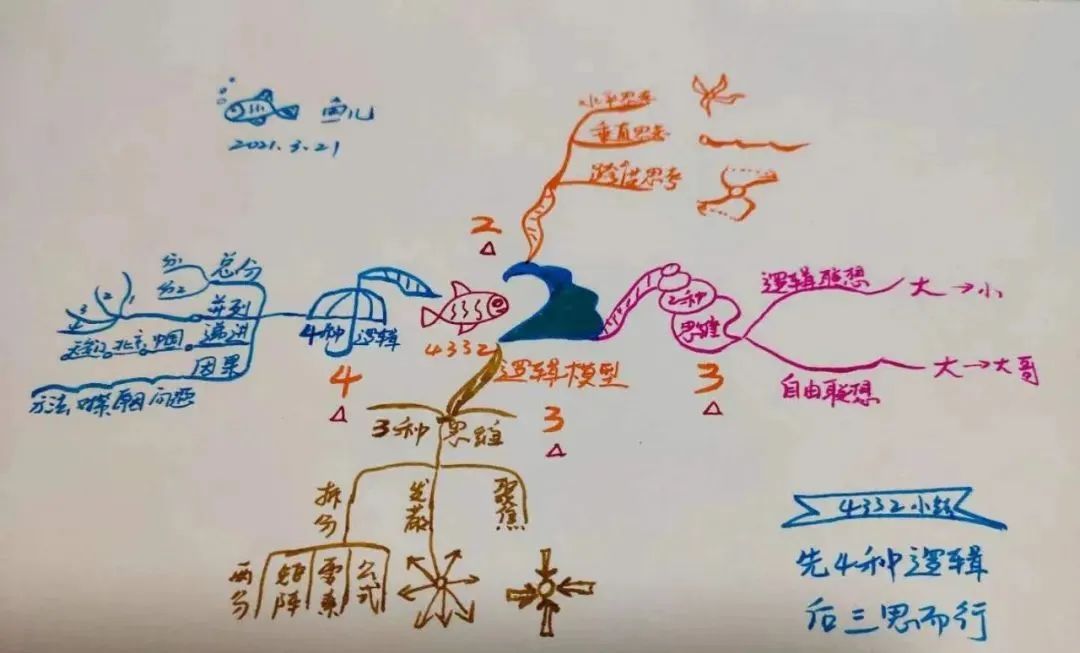 鱼儿
2021.3.21
水平思考
垂直思考
跨借思考
2
总分
分1
分2
并列
1
2
3
4
递进
天安门 北京 中国
因果
方法 对策 原因 问题
4种 逻辑
4
4332
逻辑模型
2种
思维
逻辑联想
大→小
自由联想
大→大哥
3
3
3种 思维
拆分
发散
聚焦
两分
矩阵
要素
公式
4332小结
先4种逻辑
后三思而行